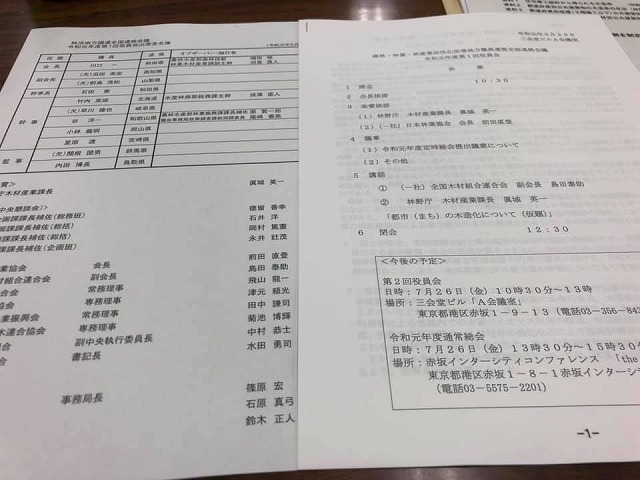 林活地方議連全国連絡会議
令和元年度第1回役員会出席者名簿
役職 氏名 道県 オブザーバー・随行者
会長 川口 一 秋田県
副会長 (欠)浜田 英宏 高知県
(欠)前島 茂松 山梨県
幹事長 石田 寛 秋田県
幹事 竹内 英順 北海道 水産林務部森林課長
(欠)早川 捷也 岐阜県
谷 洋一 和歌山県
小林 義明 岡山県
星原 透 宮崎県
監事 (欠)関根 圀男 群馬県
内田 博長 鳥取県
賓>
庁木材産業課長 眞城 英一
中央懇談会)>
企画課課長補佐(総務班) 徳留 善幸
課課長補佐(総括) 石井 洋
課課長補佐(総括) 岡村 篤憲
課課長補佐(企画班) 永井 壯茂
業協会 会長 前田 直登
材組合連合会 副会長 島田 泰助
合会 常務理事 飛山 龍一
会 専務理事 津元 頼光
業振興会 常務理事 田中 謙司
木連合協会 専務理事 菊池 博輝
組合 副中央執行委員長 中村 恭士
書記長 水田 勇司
篠原 宏
事務局長 石原 真弓
鈴木 正人
森林・林業・林産業活性化促進地方議員連盟全国連絡会議
令和元年度第1回役員会
会 次 第
10:35
1 開会
2 会長挨拶
3 来賓挨拶
(1)林野庁 木材産業課長 眞城 英一
(2)(一社)日本林業協会 会長 前田直登
4 議事
(1)令和元年度定時総会提出議案について
(2)その他
5 講話
① (一社)全国木材組合連合会 副会長 島田泰助
② 林野庁 木材産業課長 眞城 英一
「都市(まち)の木造化について(仮題)」
6 閉会 12:30
<今後の予定>
第2回役員会
日時:7月26日(金)10時30分~13時
場所:三会堂ビル「A会議室」
東京都港区赤坂1-9-13(電話03-356
令和元年度通常総会
日時:7月26日(金)13時30分~15時30分
場所:赤坂インターシティコンファレンス 「the
東京都港区赤坂1-8-1赤坂インターシ
(電話03-5575-2201)
-1-